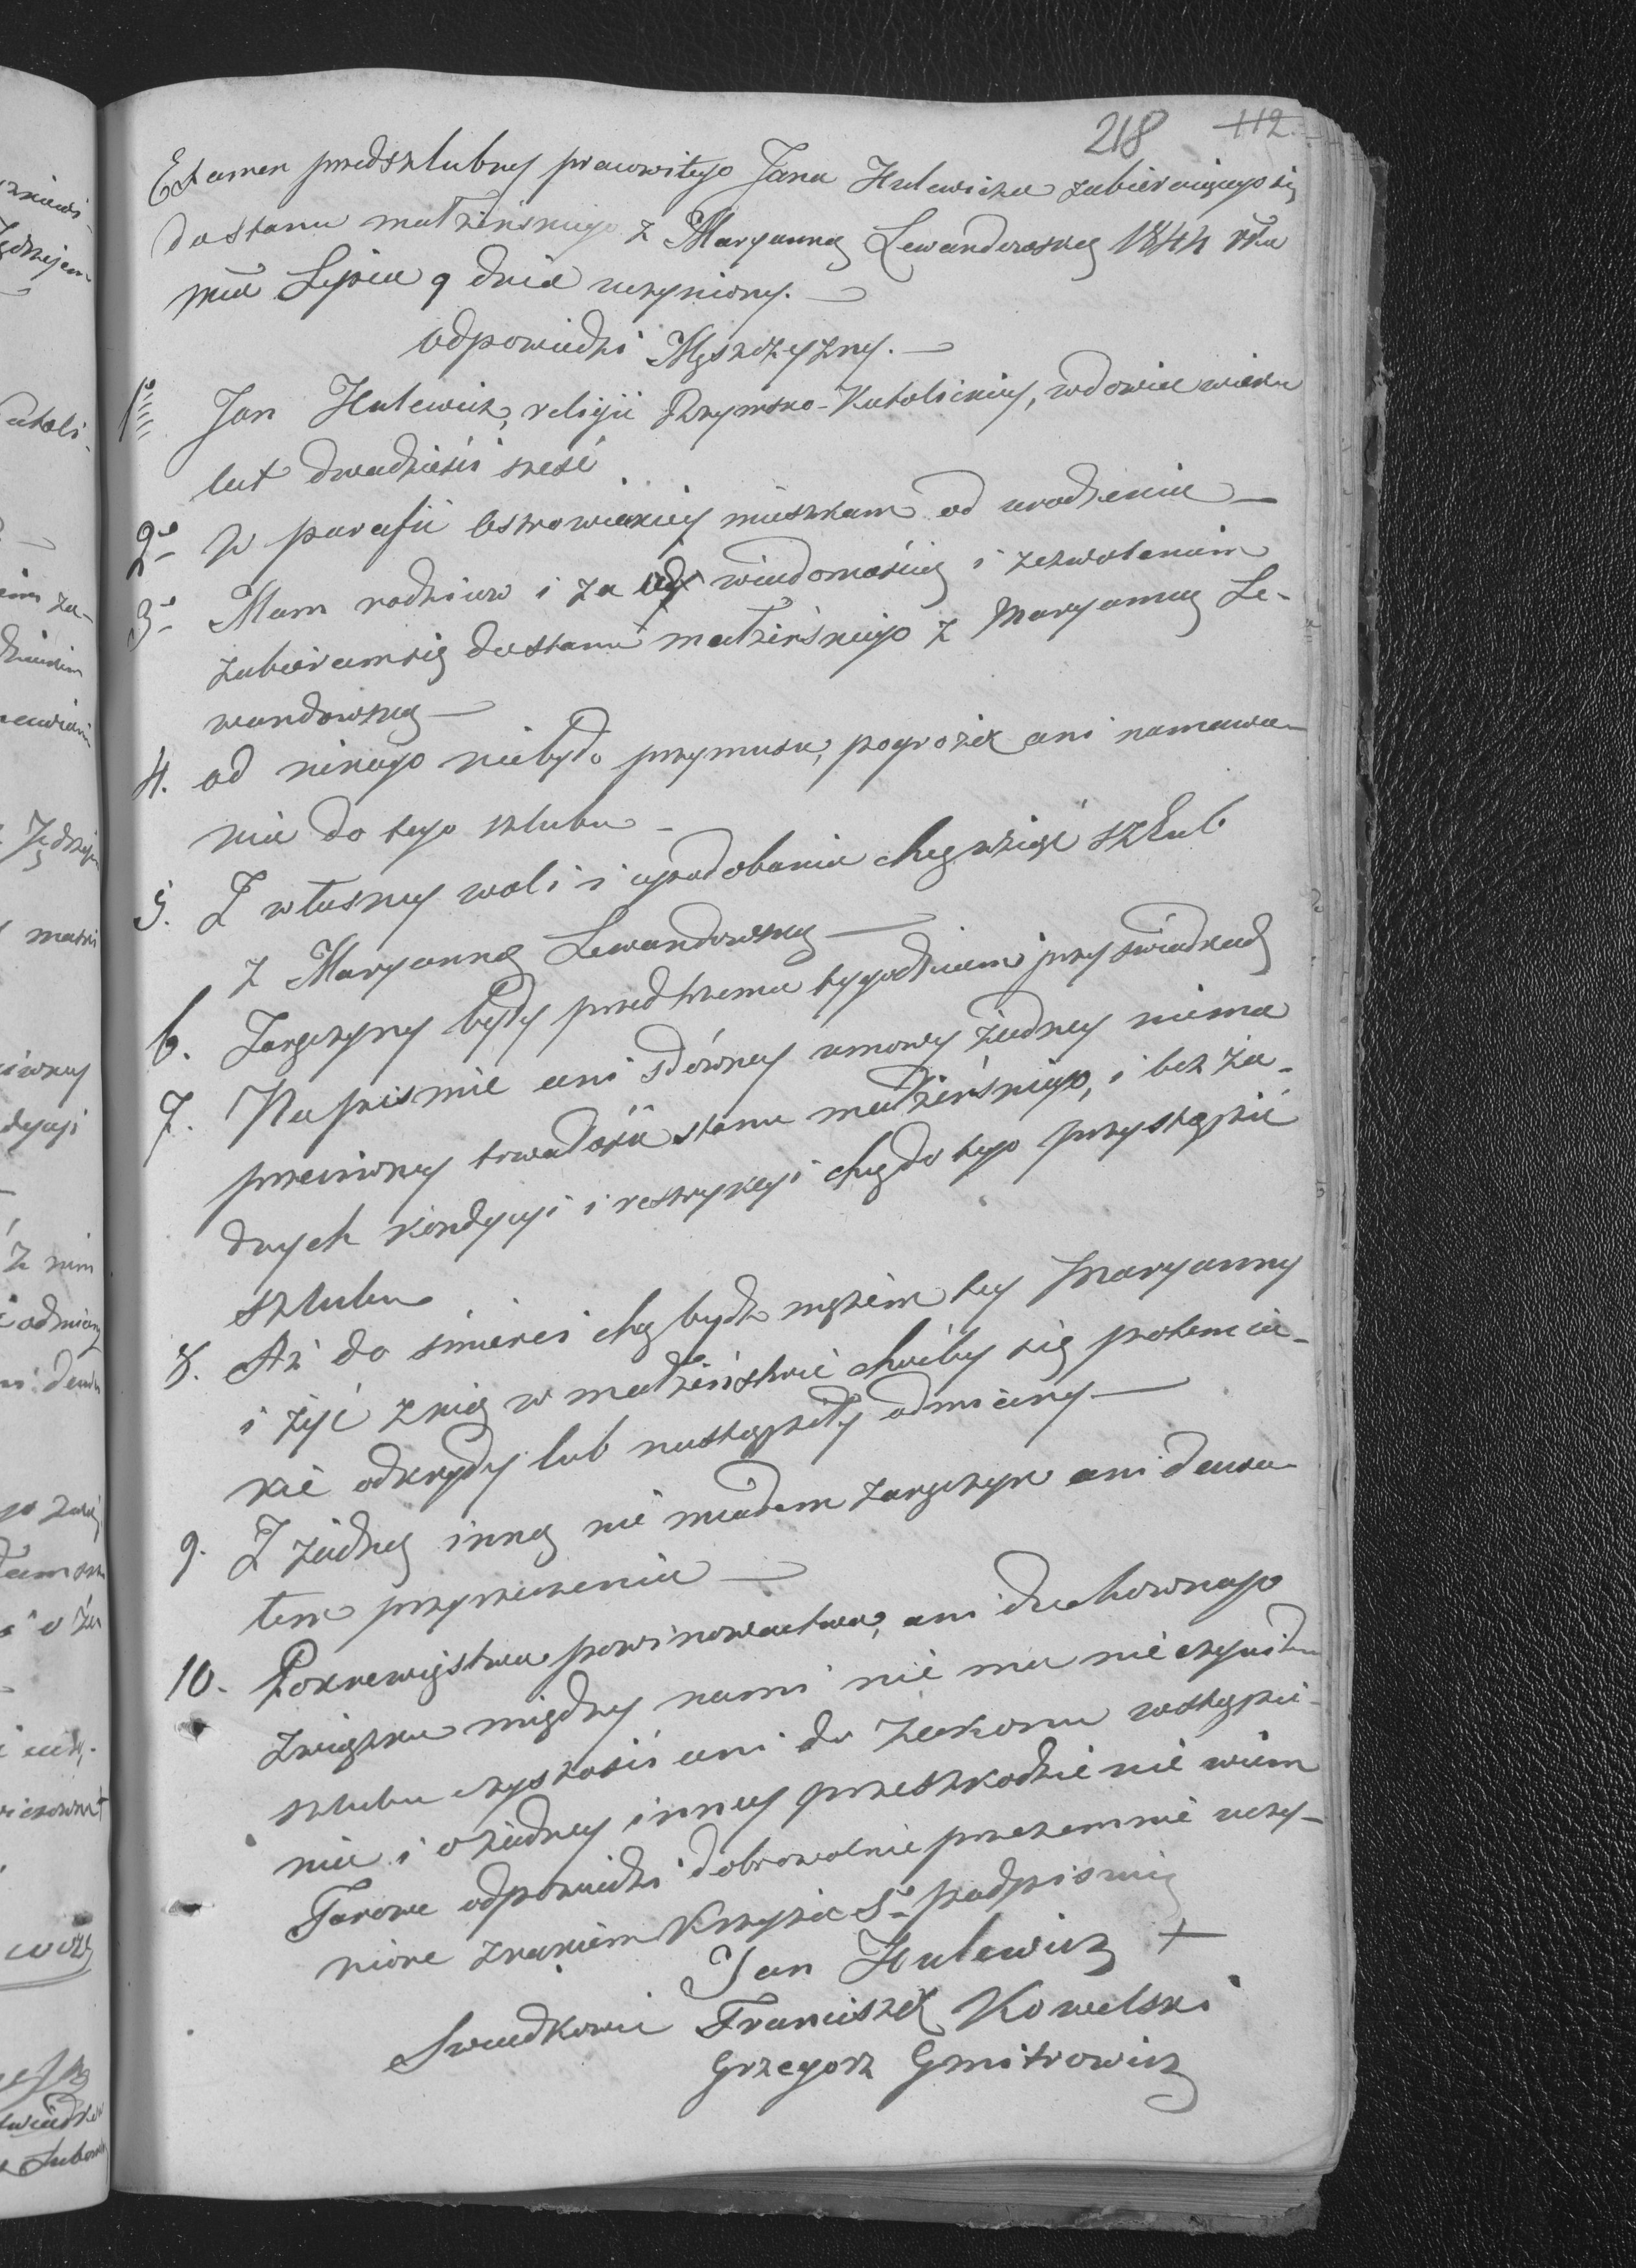 218 112.
Examen przedszlubny pracowitego Jana Hulewicza zabieraiącego się
do stanu małżeńskiego z Maryanną Lewandowską 1844 rku
mca Lipca 9 dnia uczyniony. —
Odpowiedzi Męszczyzny. —
1e Jan Hulewicz, religii Rzymsko-Katolickiey, wdowiec wieku
lat dwadzieści sześć
2e W parafii Ostrowieckiey mieszkam od urodzenia —
3e Mam rodziców i za ich wiadomością i zezwoleniem
zabieram się do stanu małżeńskiego z Maryanną Le-
wandowską —
4. Od nikogo niebyło przymusu, pogrożek ani namawia-
nia do tego szlubu —
5. Z własney woli i upodobania chcę wziąść szlub
z Maryanną Lewandowską —
6. Zaręczyny były przed trzema tygodniami przy świadkach
7. Na piśmie ani słówney umowy żadney niema
przeciwney trwałości stanu małżeńskiego, i bez ża-
dnych kondycyi i restrykcyi chcę do tego przystąpić
szlubu
8. Aż do śmierci chcę bydź mężem tey Maryanny
i żyć z nią w małżeństwie choćby się potem ia-
kie odkryły lub nastąpiły odmiany. —
9. Z żadną inną nie miałem zaręczyn ani dawa-
łem przyrzeczenia —
10. Pokrewieństwa, powinowactwa, ani duchownego
związku między nami nie ma nie czyniłem
szlubu czystości ani do zakonu wstąpie-
nia i o żadney inney przeszkodzie nie wiem
Takowe odpowiedzi dobrowolnie przezemnie uczy-
nione znakiem Krzyża S° podpisuię
Jan Hulewicz +
Swiadkowie Franciszek Kowalski
Grzegorz Gmitrowicz